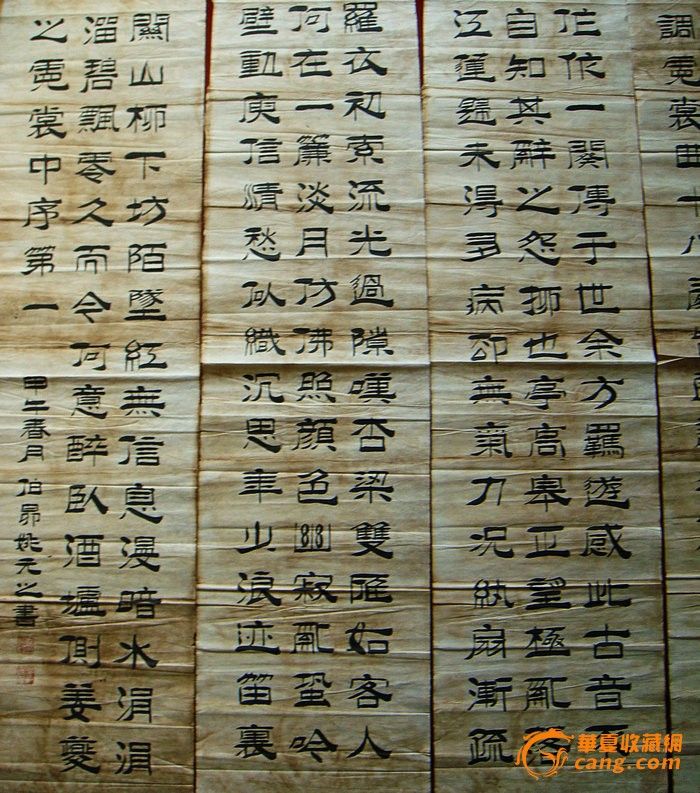 調霓裳曲十八
作一闋傳于世余方羈遊感此古音不
自知其辭之怨抑也亭高皋正望極亂落
江蓮歸未得多病卻無氣力況紈扇漸疏
羅衣初索流光過隙嘆杏梁雙雁如客人
何在一簾淡月仿佛照顏色幽寂亂蛩吟
壁動庾信清愁似織沉思年少浪迹笛裏
關山柳下坊陌墜紅無信息漫暗水涓涓
溜碧飄零久而今何意醉臥酒壚側姜夔
之霓裳中序第一
甲午春月伯昂姚元之書
華夏收藏網
cang.com